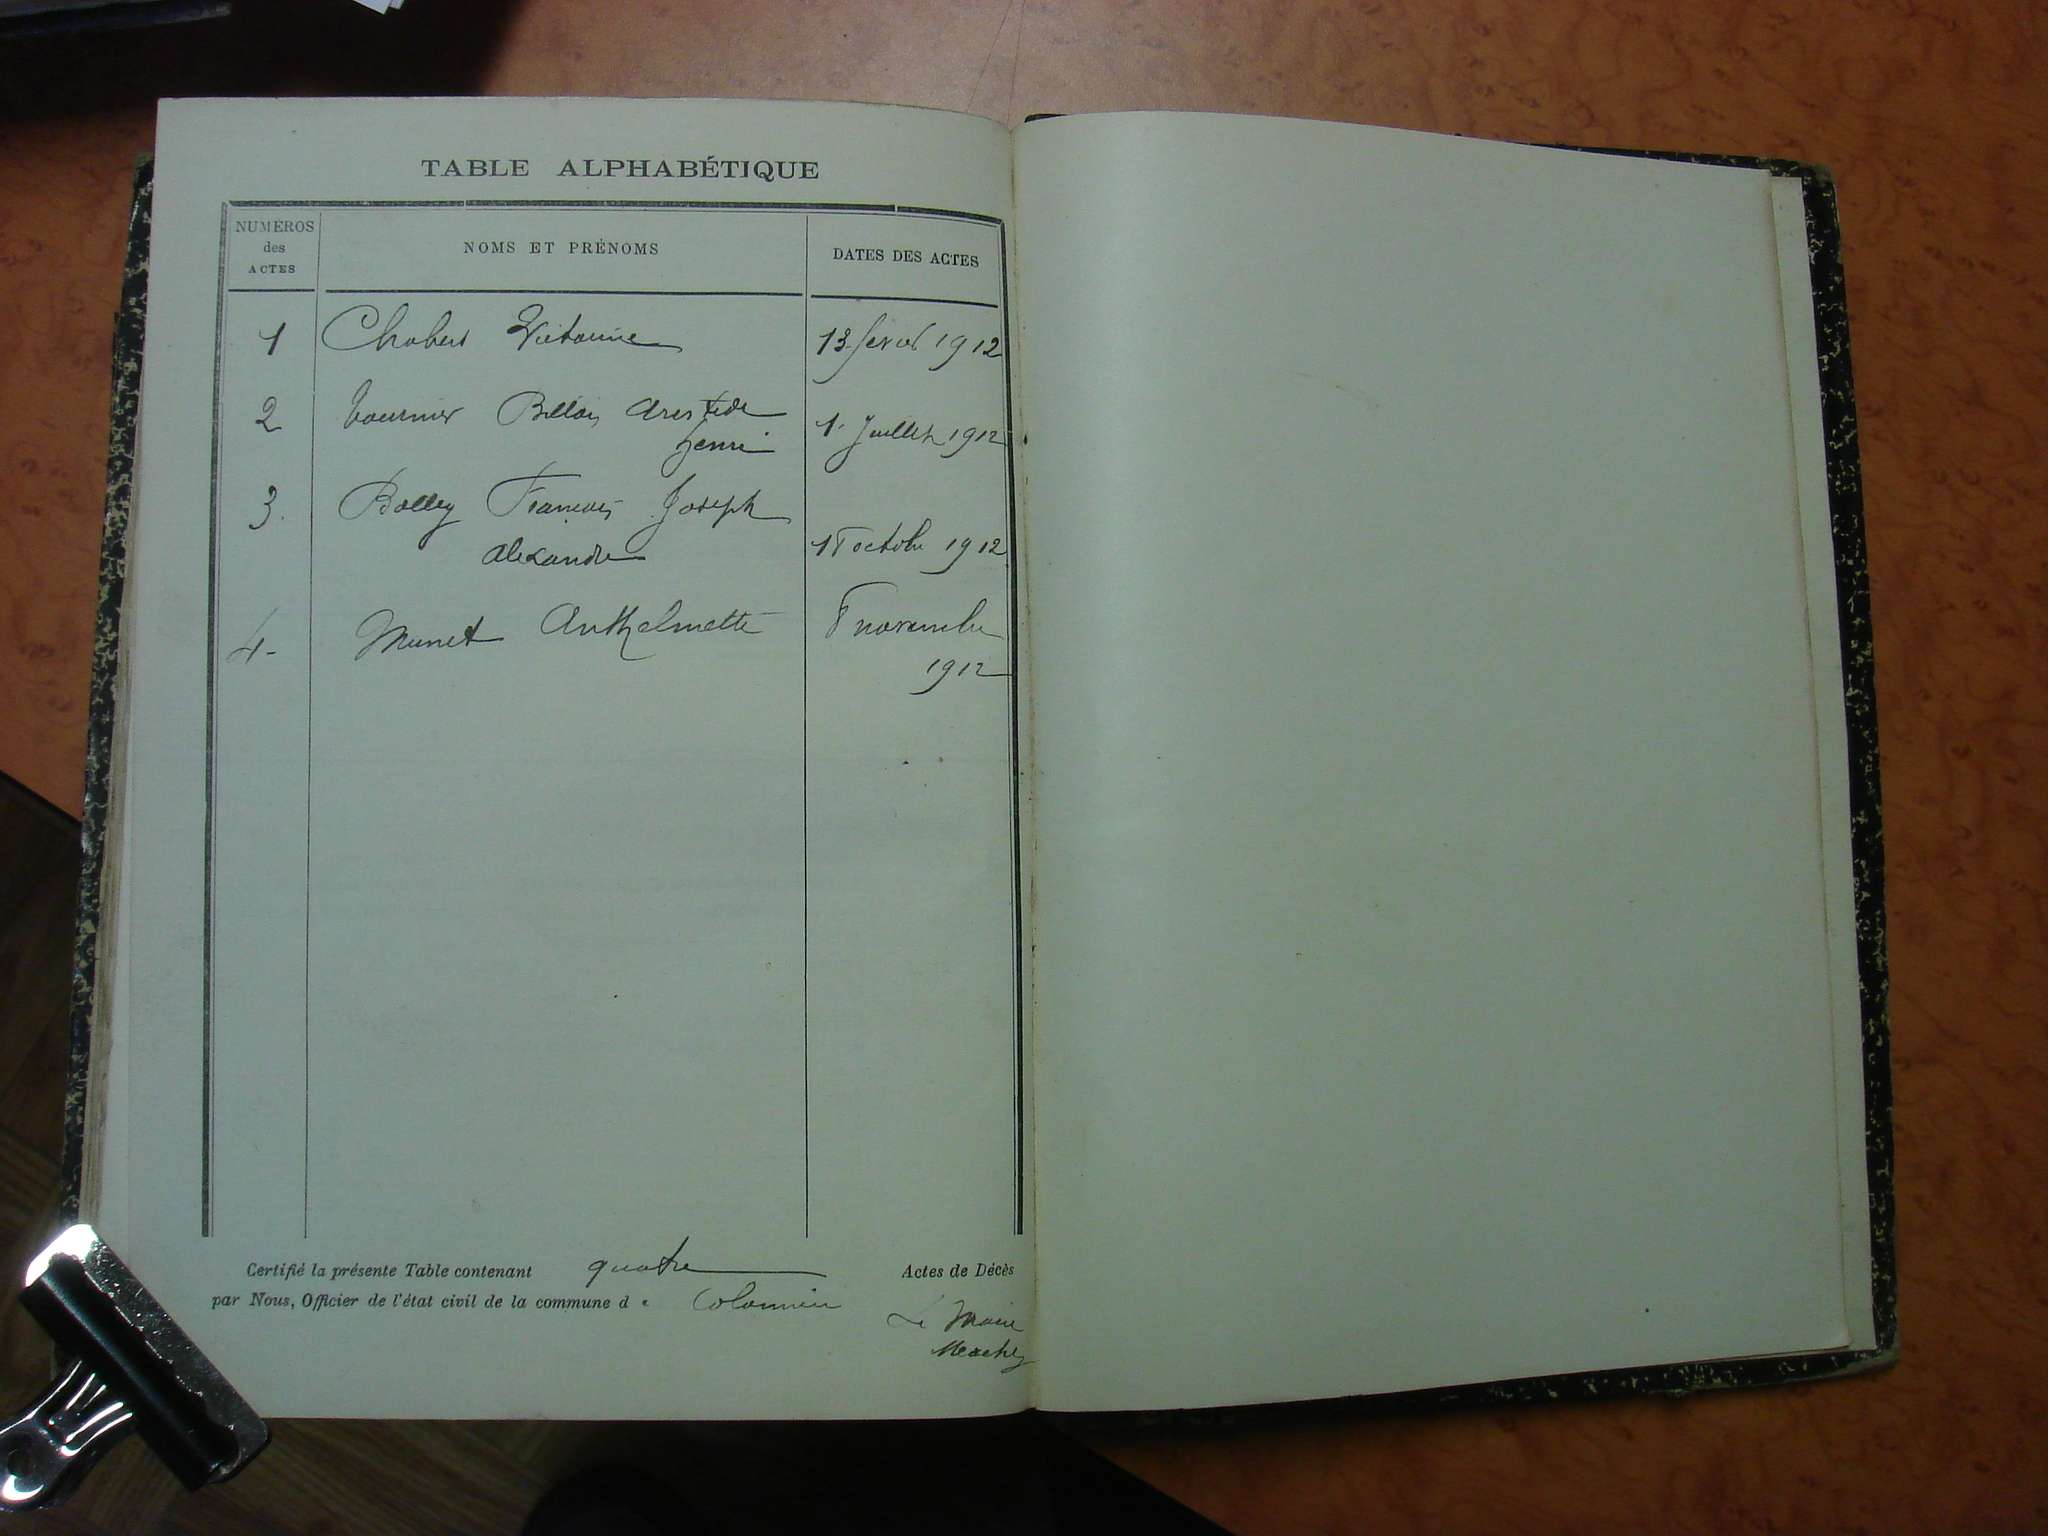 TABLE ALPHABÉTIQUE
NUMÉROS des ACTES NOMS ET PRÉNOMS DATES DES ACTES
1 Chabert Victorine 13 février 1912
2 Tournier Billon Aristide
henri 1. Juillet 1912
3. Bolley François Joseph
alexandre 18 octobre 1912
4- Munet Anthelmette 8 novembre
1912
Certifié la présente Table contenant quatre Actes de Décès
par Nous, Officier de l'état civil de la commune d e Colomieu
Le Maire